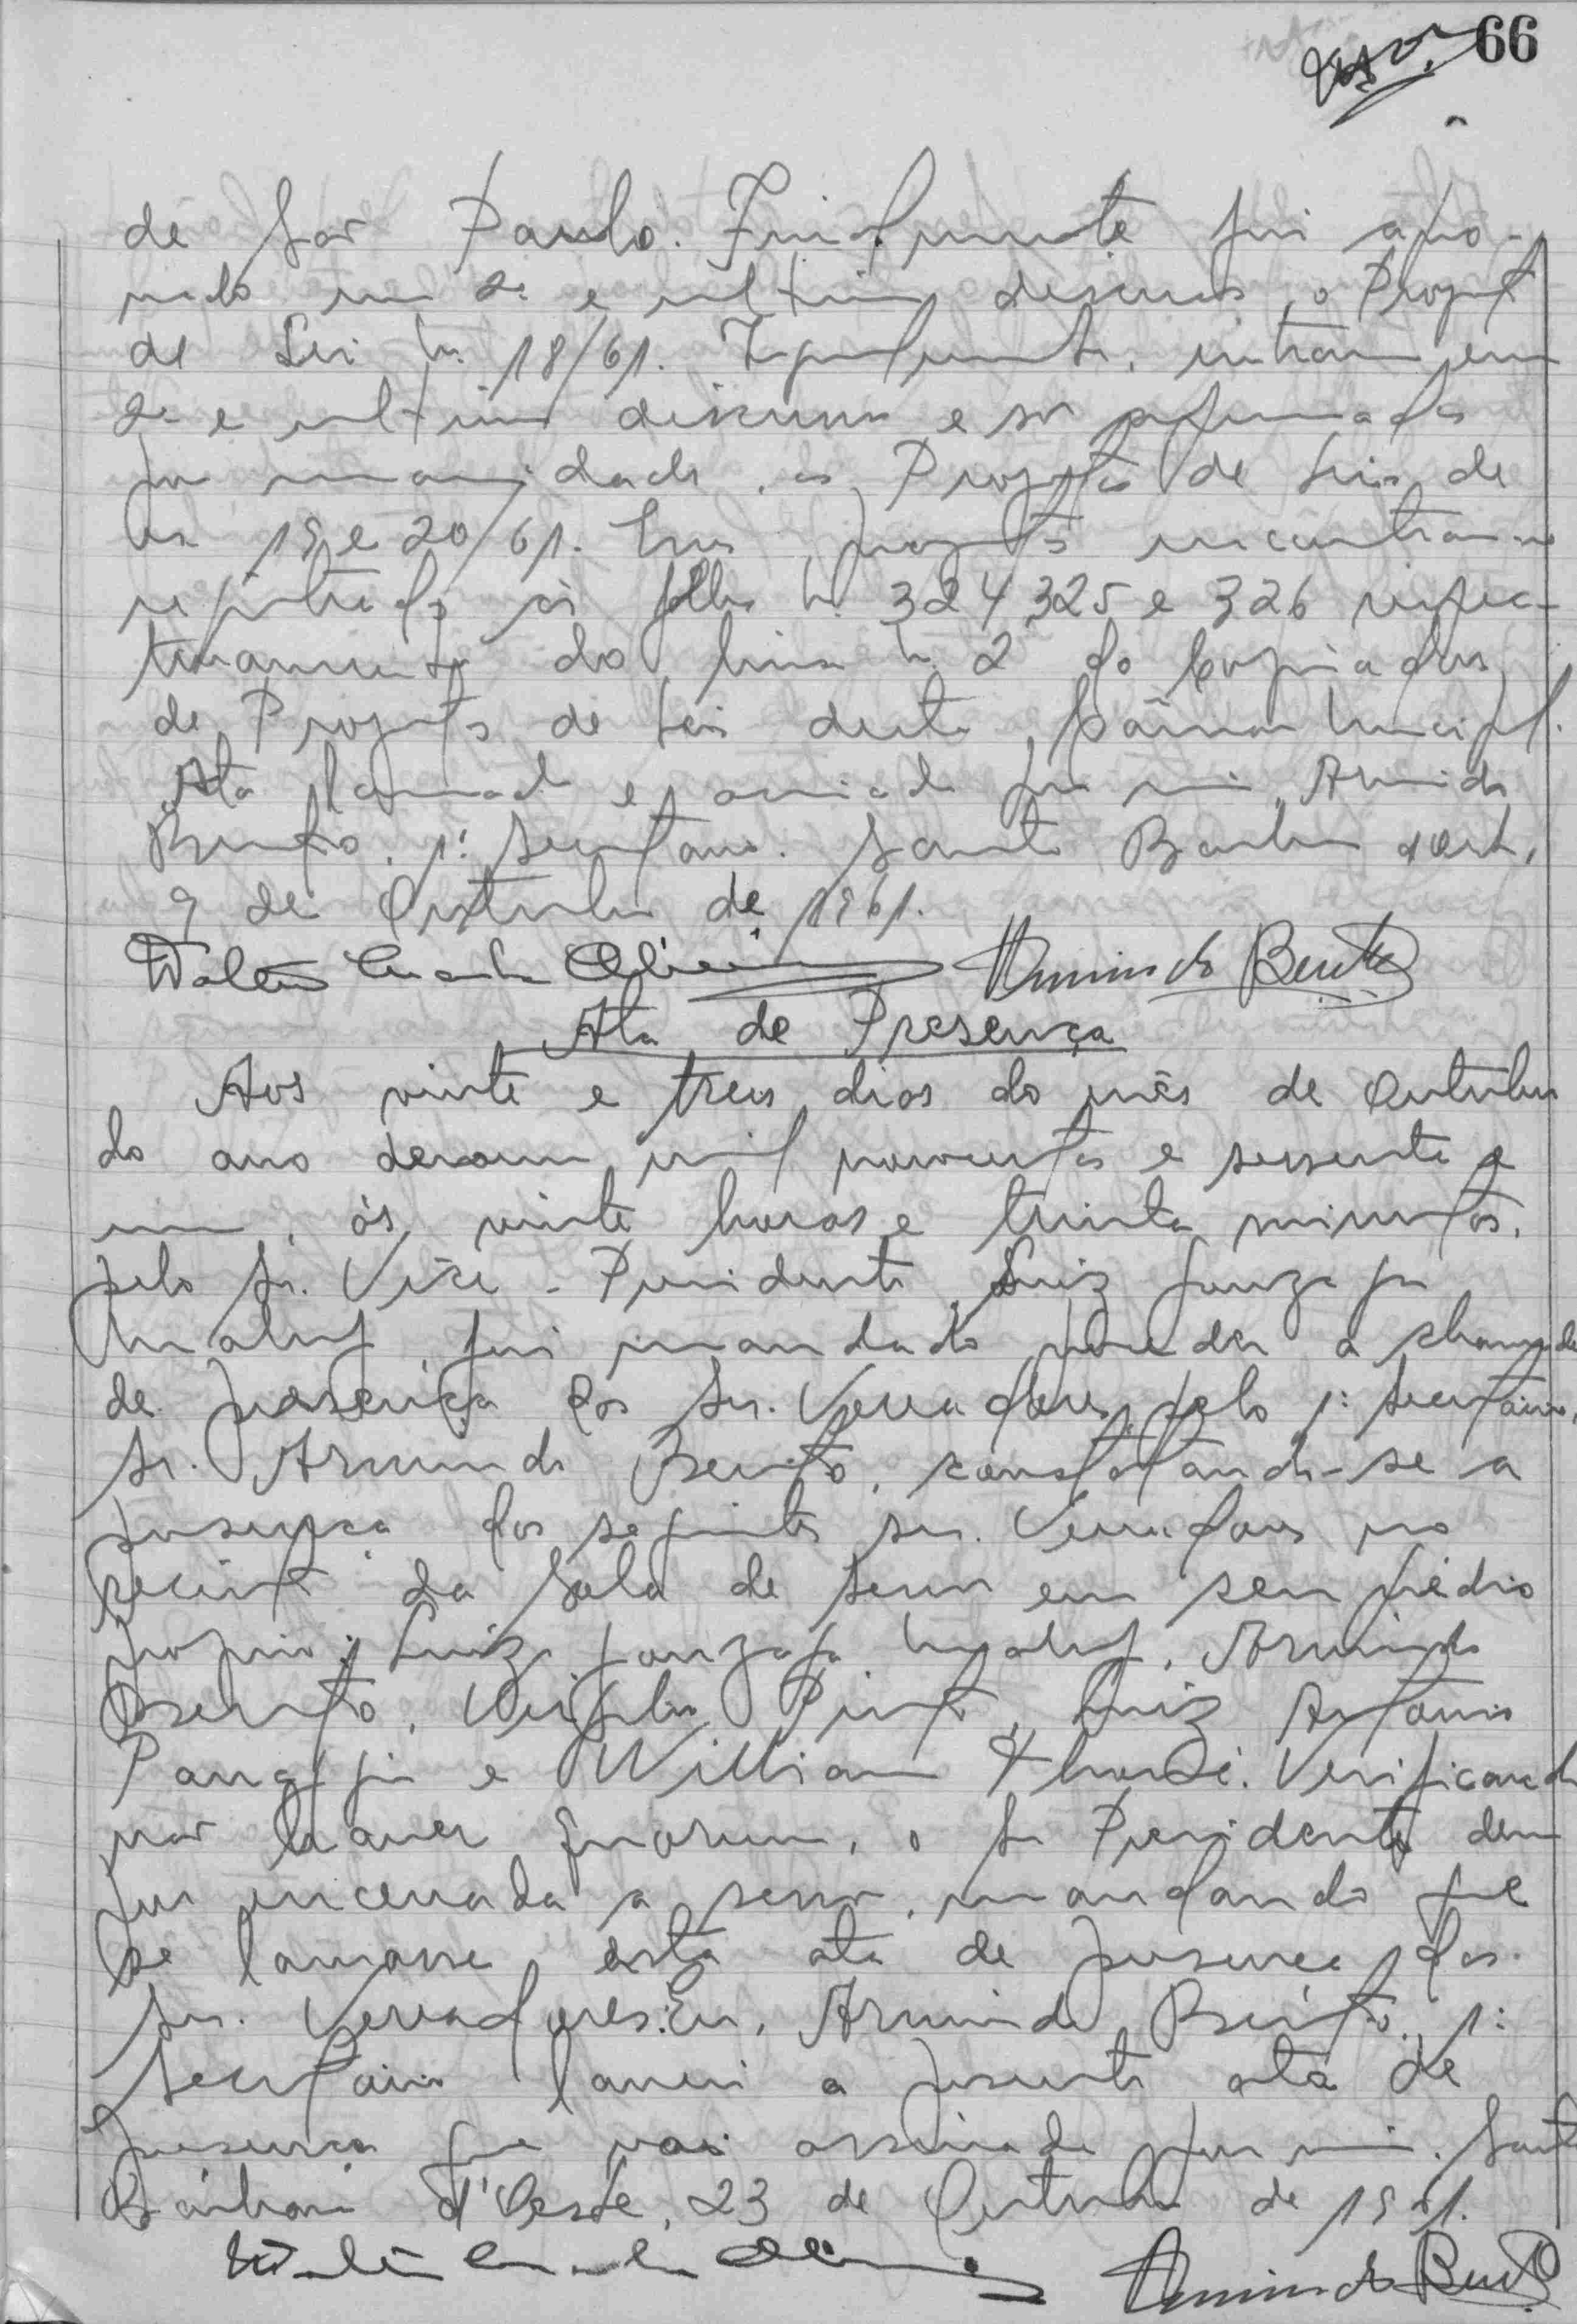 66
de São Paulo. Finalmente foi apro-
vado em 2a e ultima discussão o Projeto
de Lei n. 18/61. Igualmente, entram em
2a e ultima discussão e são aprovados
por unanimidade, os Projetos de Leis de
ns. 19 e 20/61. Esses projetos encontram-se
registrados às folhas n. 324 325 e 326 respec-
tivamente do livro n. 2 do Copiador
de Projetos de Leis desta Câmara Municipal.
Ata lavrada e assinada por mim, Armindo
Bento, 1º Secretario. Santa Barbara d'Oeste,
9 de Outubro de 1961.
Armindo Bento
Ata de Presença
Aos vinte e tres dias do mês de Outubro
do ano de mil novecentos e sessenta e
um, às vinte horas e trinta minutos,
pelo Sr. Vice-Presidente, Luiz Gonzaga
Maluf, foi mandado proceder a chamada
de presença dos Srs. Vereadores, pelo 1º Secretário,
Sr. Armindo Bento, constatando-se a
presença dos seguintes srs. Vereadores no
recinto da Sala de Sessão em seu prédio
proprio: Luiz Gonzaga Maluf, Armindo
Bento, Pinto, Luiz Antonio
e William Verificando
não haver quorum, o Sr Presidente deu
por encerrada a sessão, mandando que
se lavrasse esta ata de presença dos
Srs. Vereadores. Eu, Armindo Bento, 1º
Secretário lavrei a presente ata de
presença que vai assinada por mim. Santa
Bárbara d'Oeste, 23 de Outubro de 1961.
Armindo Bento